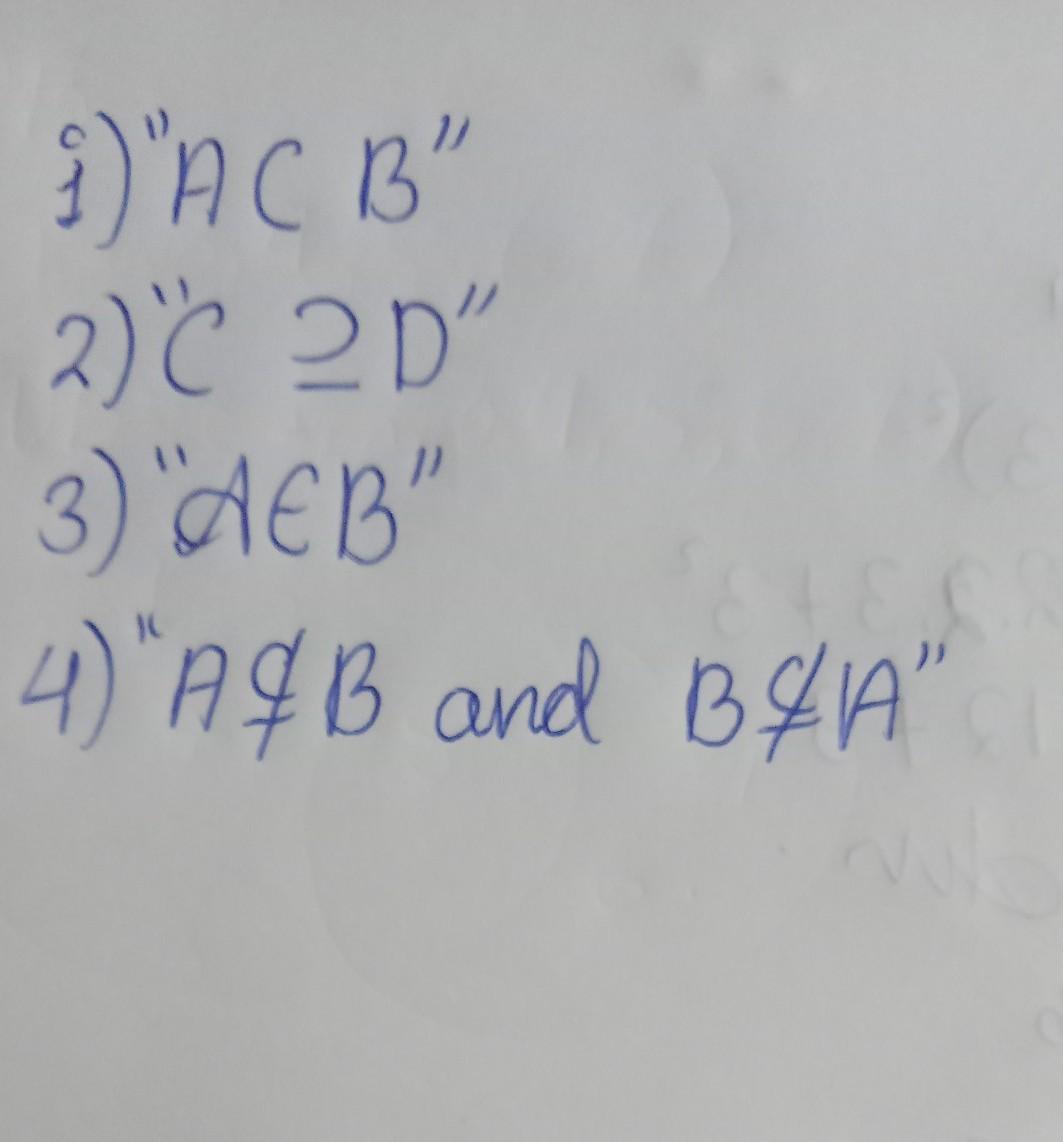 1) "A ⊂ B"
2) "C ⊇ D"
3) "A ∈ B"
4) "A ⊈ B and B ⊈ A"